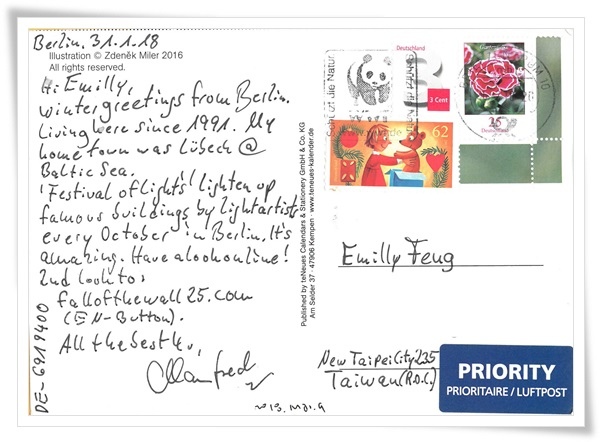 Berlin, 31.1.18
Illustration © Zdeněk Miler 2016
All rights reserved.
Hi Emilly,
wintergreetings from Berlin.
Living were since 1991. My
home town was Lübeck @
Baltic Sea.
'Festival of lights' lighten up
famous buildings by lightartists
every October in Berlin. It's
amazing. Have a look online!
2nd look to:
fallofthewall25.com
(EN-Button).
All the best 4u,
Manfred
DE-6919400
Published by teNeues Calendars & Stationery GmbH & Co. KG
Am Selder 37 · 47906 Kempen · www.teneues-kalender.de
Schützt die Natur
Deutschland
3 Cent
25
Deutschland
62
Emilly Feng
New Taipei City 235
Taiwan (R.O.C.)
PRIORITY
PRIORITAIRE / LUFTPOST